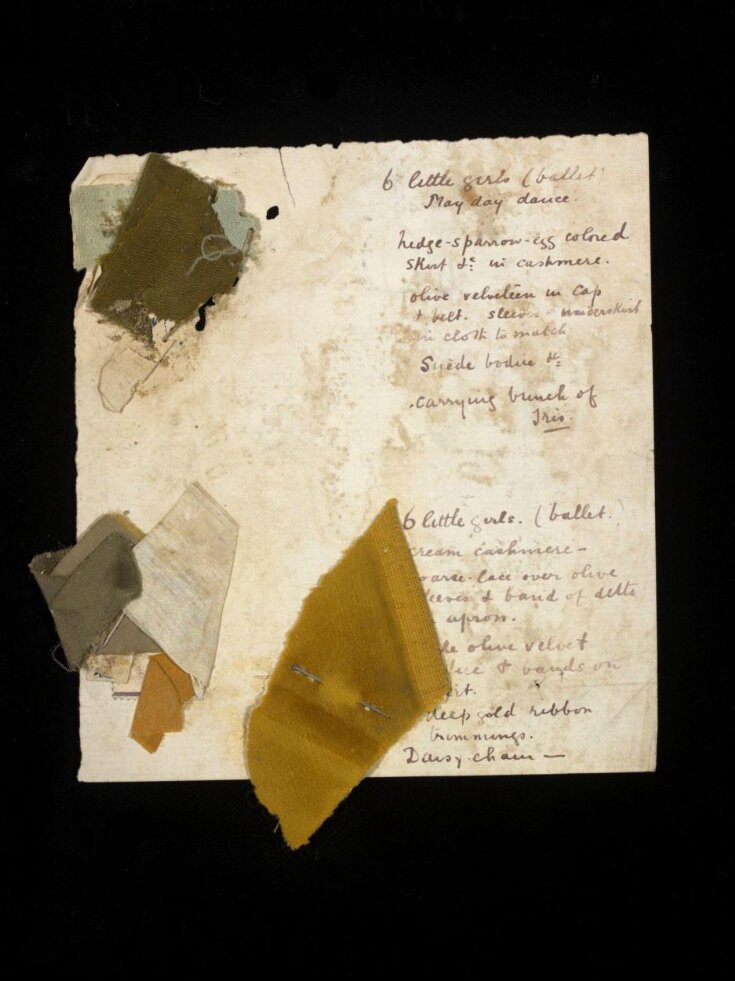 6 little girls (ballet)
May day dance.
hedge-sparrow-egg colored
skirt &c in cashmere.
olive velveteen in Cap
& belt. sleeves & underskirt
in cloth to match
Suède bodice &c
carrying bunch of
Iris.
6 little girls. (ballet.
cream cashmere –
lace over olive
& band of ditto
apron.
olive velvet
& bands on
deep gold ribbon
trimmings.
Daisy-chain —